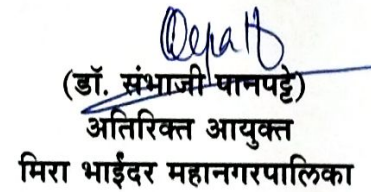 (डॉ. संभाजी पानपट्टे)
अतिरिक्त आयुक्त
मिरा भाईंदर महानगरपालिका